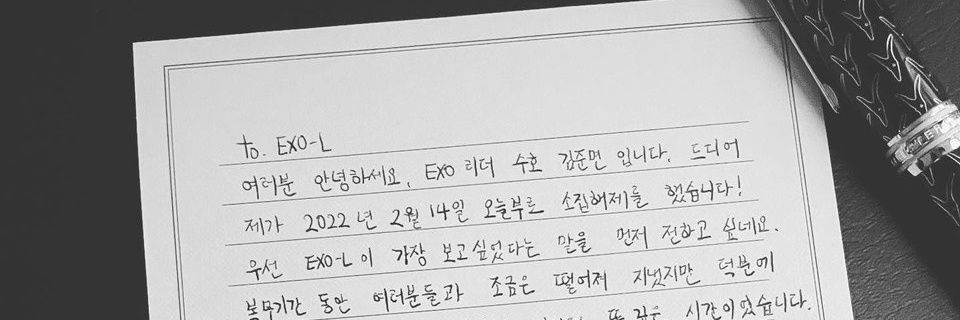 to. EXO-L
여러분 안녕하세요, EXO 리더 수호 김준면 입니다. 드디어
제가 2022년 2월 14일 오늘부로 소집해제를 했습니다!
우선 EXO-L이 가장 보고싶었다는 말을 먼저 전하고 싶네요.
복무기간 동안 여러분들과 조금은 떨어져 지냈지만 덕분에
시간이었습니다.